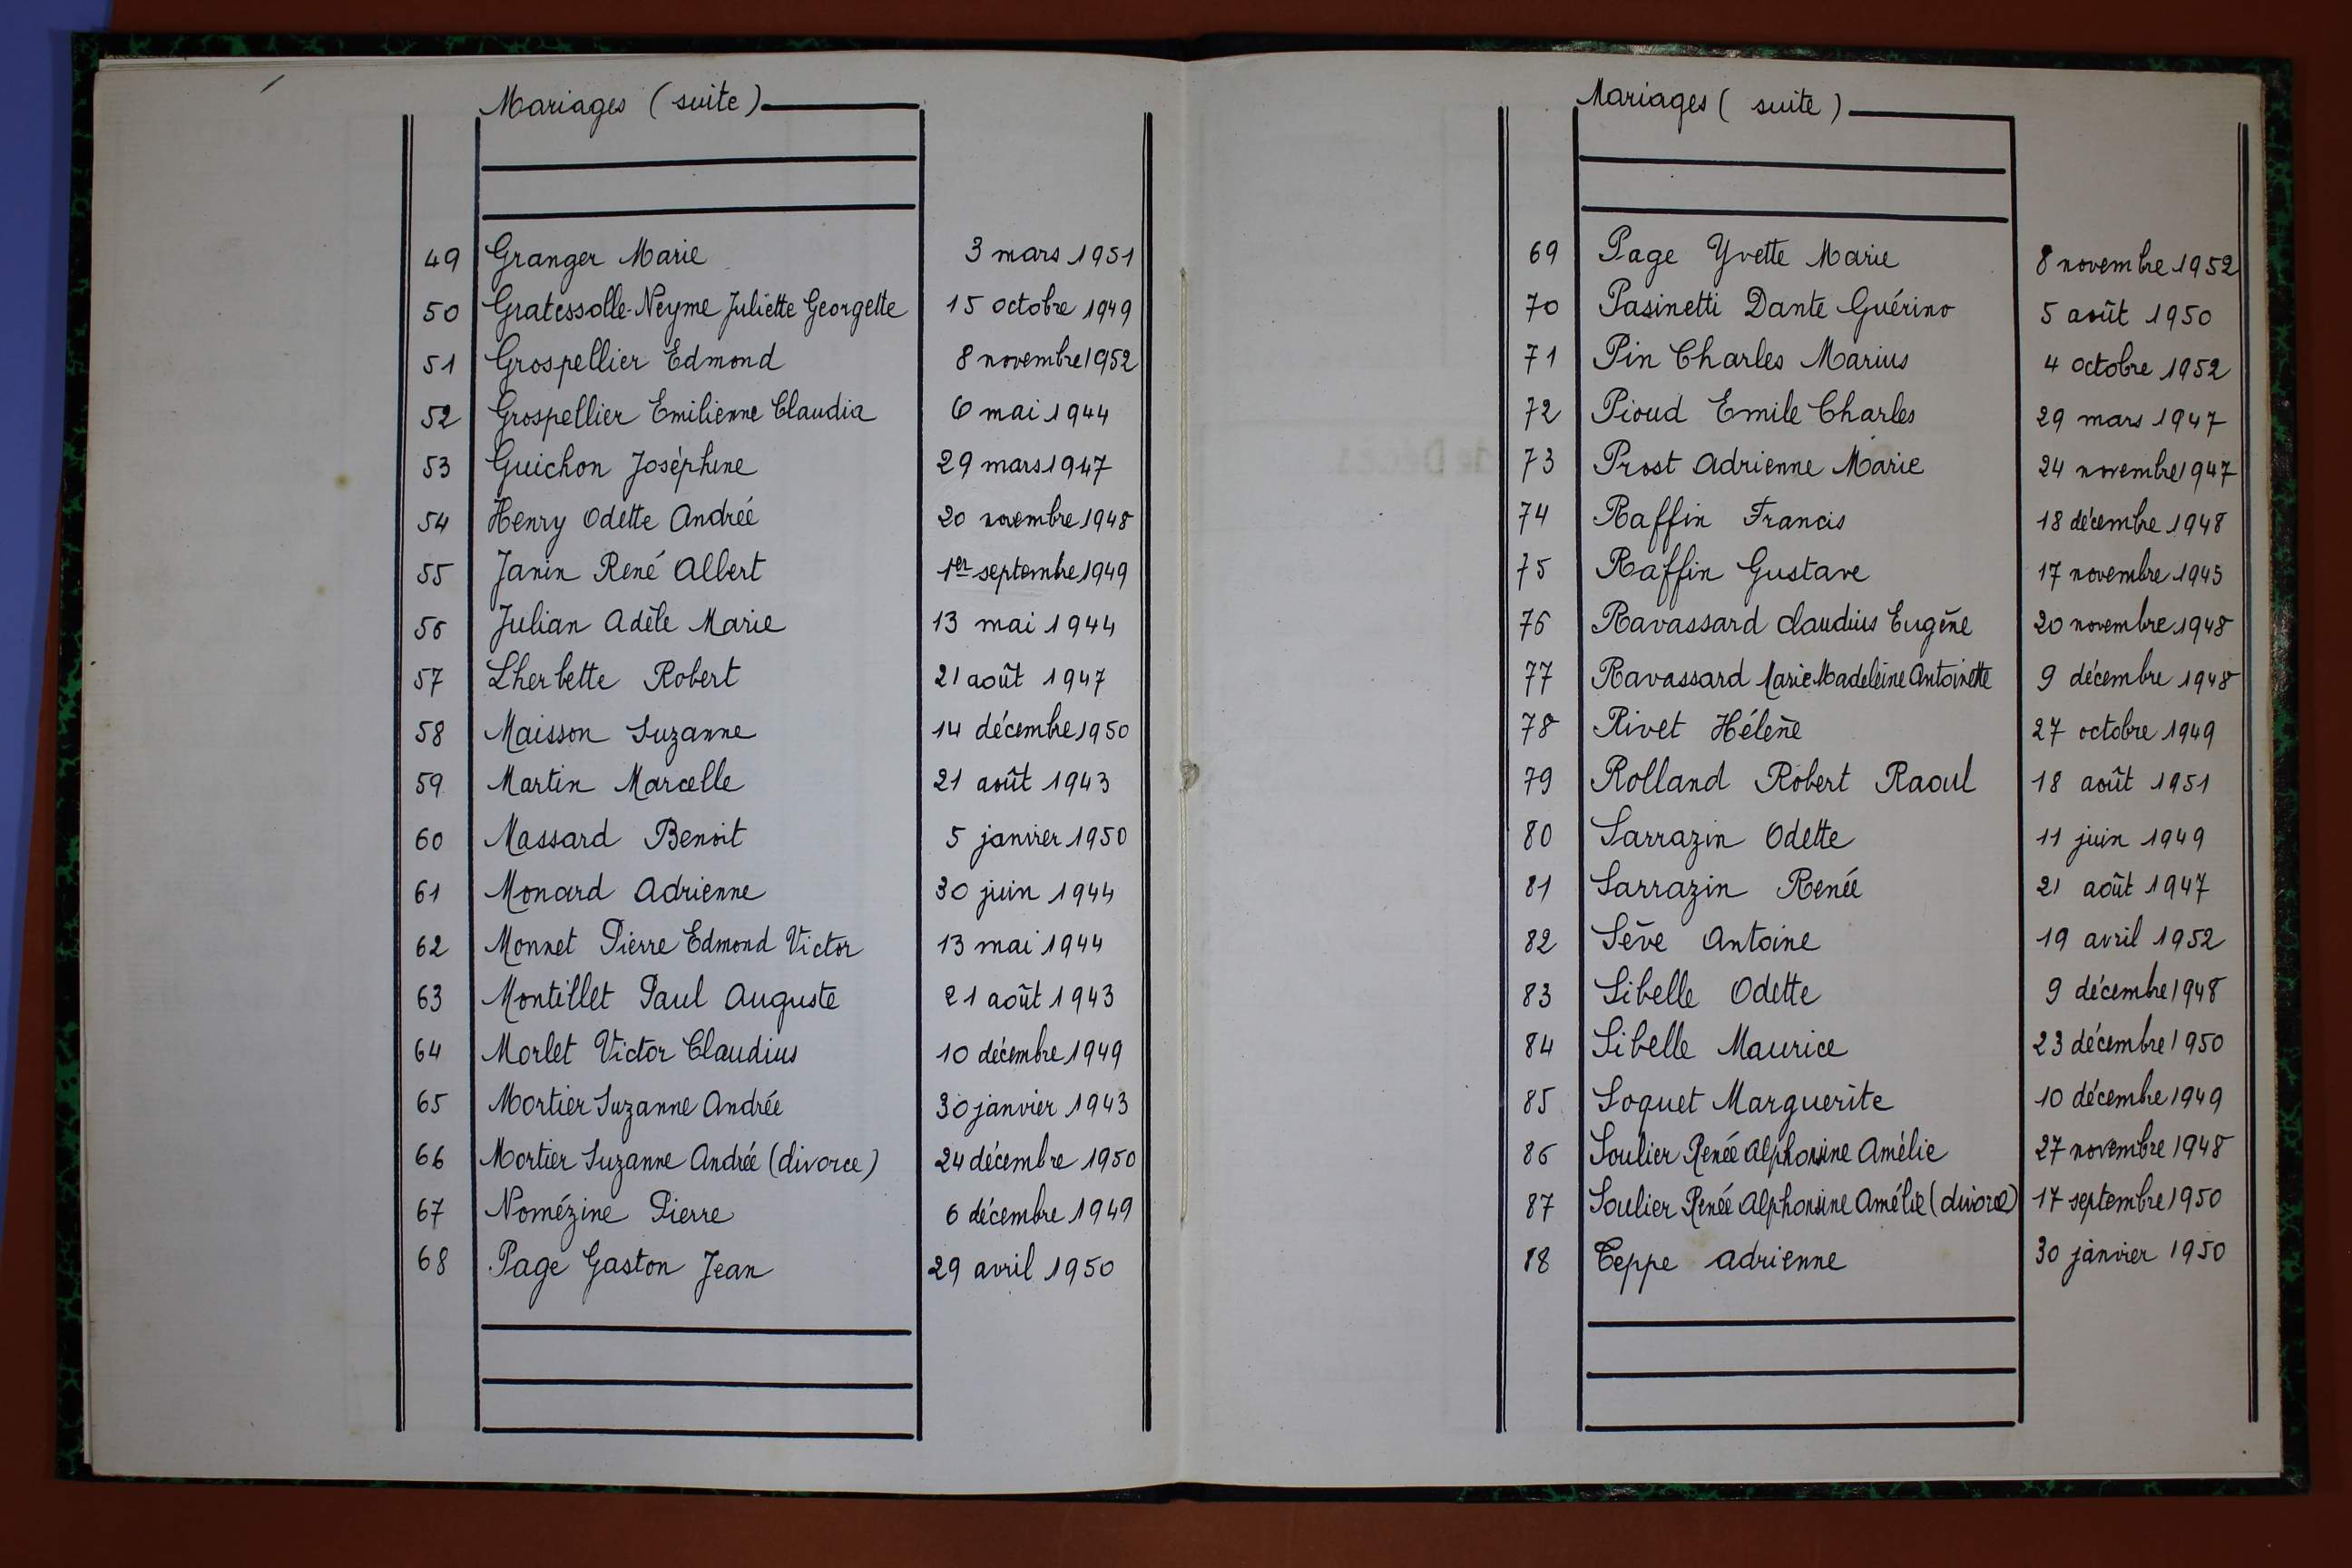 Mariages (suite)
49 Granger Marie 3 mars 1951
50 Gratessolle-Neyme Juliette Georgette 15 octobre 1949
51 Grospellier Edmond 8 novembre 1952
52 Grospellier Emilienne Claudia 6 mai 1944
53 Guichon Joséphine 29 mars 1947
54 Henry Odette Andrée 20 novembre 1948
55 Janin René Albert 1er septembre 1949
56 Julian Adèle Marie 13 mai 1944
57 Lherbette Robert 21 août 1947
58 Maisson Suzanne 14 décembre 1950
59 Martin Marcelle 21 août 1943
60 Massard Benoit 5 janvier 1950
61 Monard Adrienne 30 juin 1944
62 Monnet Pierre Edmond Victor 13 mai 1944
63 Montillet Paul Auguste 21 août 1943
64 Morlet Victor Claudius 10 décembre 1949
65 Mortier Suzanne Andrée 30 janvier 1943
66 Mortier Suzanne Andrée (divorce) 24 décembre 1950
67 Nomézine Pierre 6 décembre 1949
68 Page Gaston Jean 29 avril 1950
Mariages (suite)
69 Page Yvette Marie 8 novembre 1952
70 Pasinetti Dante Guérino 5 août 1950
71 Pin Charles Marius 4 octobre 1952
72 Pioud Emile Charles 29 mars 1947
73 Prost Adrienne Marie 24 novembre 1947
74 Raffin Francis 18 décembre 1948
75 Raffin Gustave 17 novembre 1945
76 Ravassard Claudius Eugène 20 novembre 1948
77 Ravassard Marie Madeleine Antoinette 9 décembre 1948
78 Rivet Hélène 27 octobre 1949
79 Rolland Robert Raoul 18 août 1951
80 Sarrazin Odette 11 juin 1949
81 Sarrazin Renée 21 août 1947
82 Sève Antoine 19 avril 1952
83 Sibelle Odette 9 décembre 1948
84 Sibelle Maurice 23 décembre 1950
85 Soquet Marguerite 10 décembre 1949
86 Soulier Renée Alphonsine Amélie 27 novembre 1948
87 Soulier Renée Alphonsine Amélie (divorce) 17 septembre 1950
88 Teppe Adrienne 30 janvier 1950